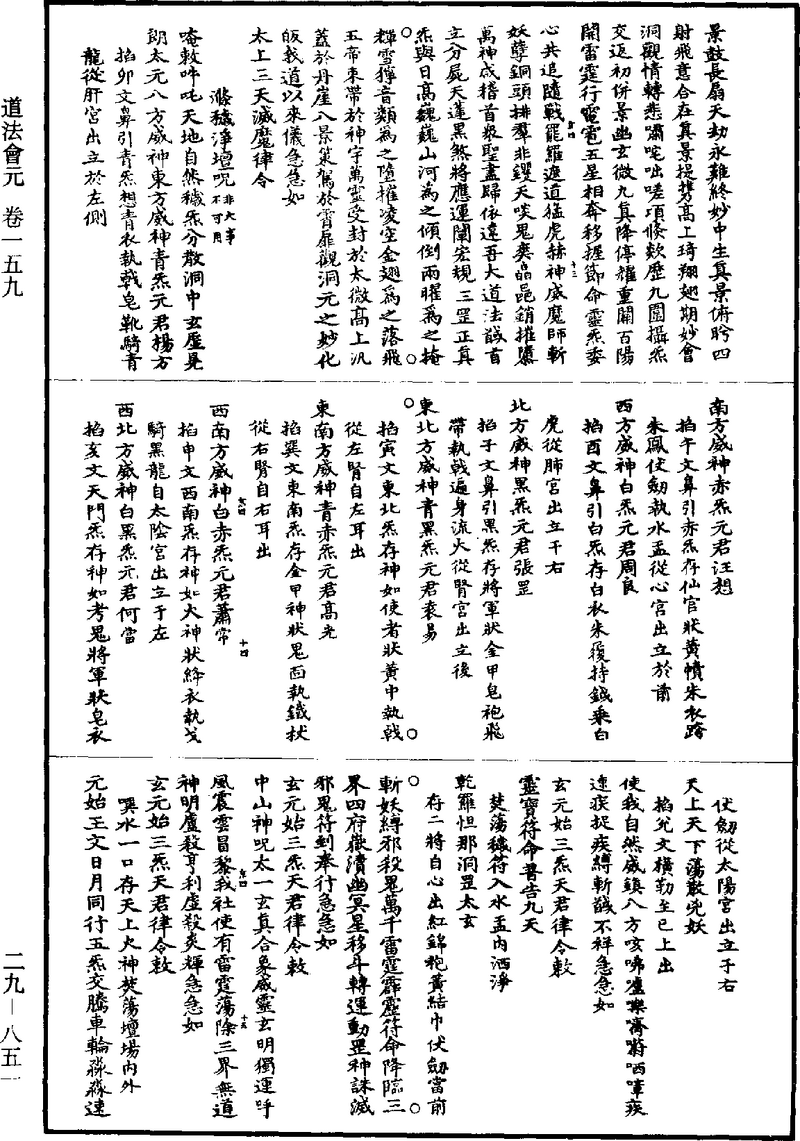 道法會元 卷一五九
二九－八五一
景鼓長扇天劫永難終妙中生真景俯眄四
射飛意合在真景提携高上琦翔翅期妙會
洞觀情轉悲嘯咤出嗟項倏欻歷九圍攝炁
交返初併景幽玄微九真降停耀重關百陽
開雷霆行電雹五星相奔移握節命靈炁委
心共追隨戰罷羅遮道猛虎赫神威魔師斬
妖孽銅頭排羣非钁天啖鬼奭畾砲銷摧隳
萬神咸稽首衆聖盡歸依違吾大道法馘首
立分屍天蓬黑煞將應運闡宏規三罡正真
炁與日高巍巍山河為之傾倒兩曜為之掩
輝雪獐音顡為之隨摧凌空金翅為之落飛
五帝束帶於神字萬靈受封於太微高上汎
蓋於丹崖八景策駕於霄扉觀洞元之妙化
皈我道以來儀急急如
太上三天滅魔律令
滌穢淨壇呪非大事不可用
唵敕吽吒天地自然穢炁分散洞中玄虛晃
朗太元八方威神東方威神青炁元君楊方
掐卯文鼻引青炁想青衣執戟皂靴騎青
龍從肝宮出立於左側
南方威神赤炁元君汪想
掐午文鼻引赤炁存仙官狀黃幘朱衣跨
朱鳳仗劍執水盂從心宮出立於前
西方威神白炁元君周良
掐酉文鼻引白炁存白衣朱履持鉞乘白
虎從肺宮出立于右
北方威神黑炁元君張罡
掐子文鼻引黑炁存將軍狀金甲皂袍飛
帶執戟遍身流火從腎宮出立後
東北方威神青黑炁元君袁昜
掐寅文東北炁存神如使者狀黃巾執戟
從左腎自左耳出
東南方威神青赤炁元君高充
掐巽文東南炁存金甲神狀鬼面執鐵杖
從右腎自右耳出
西南方威神白赤炁元君蕭常
掐申文西南炁存神如火神狀絳衣執戈
騎黑龍自太陰宮出立于左
西北方威神白黑炁元君何當
掐亥文天門炁存神如考鬼將軍狀皂衣
仗劍從太陽宮出立于右
天上天下蕩散兇妖
掐兊文橫勒至巳上出
使我自然威鎮八方
速疾捉疾縛斬馘不祥急急如
玄元始三炁天君律令敕
靈寶符命普告九天
焚蕩穢符入水盂內洒淨
乾羅怛那洞罡太玄
存二將自心出紅錦袍黃結巾仗劍當前
斬妖縛邪殺鬼萬千雷霆霹靂符命降臨三
界四府嶽瀆幽冥星移斗轉運動罡神誅滅
邪鬼符到奉行急急如
玄元始三炁天君律令敕
中山神呪太一玄真合象威靈玄明獨運呼
風震雲昌黎我社使有雷霆蕩除三界無道
神明盧殺亨利虛殺炎輝急急如
玄元始三炁天君律令敕
噀水一口存天上火神焚蕩壇場內外
元始王文日月同行五炁交騰車輪淼淼速